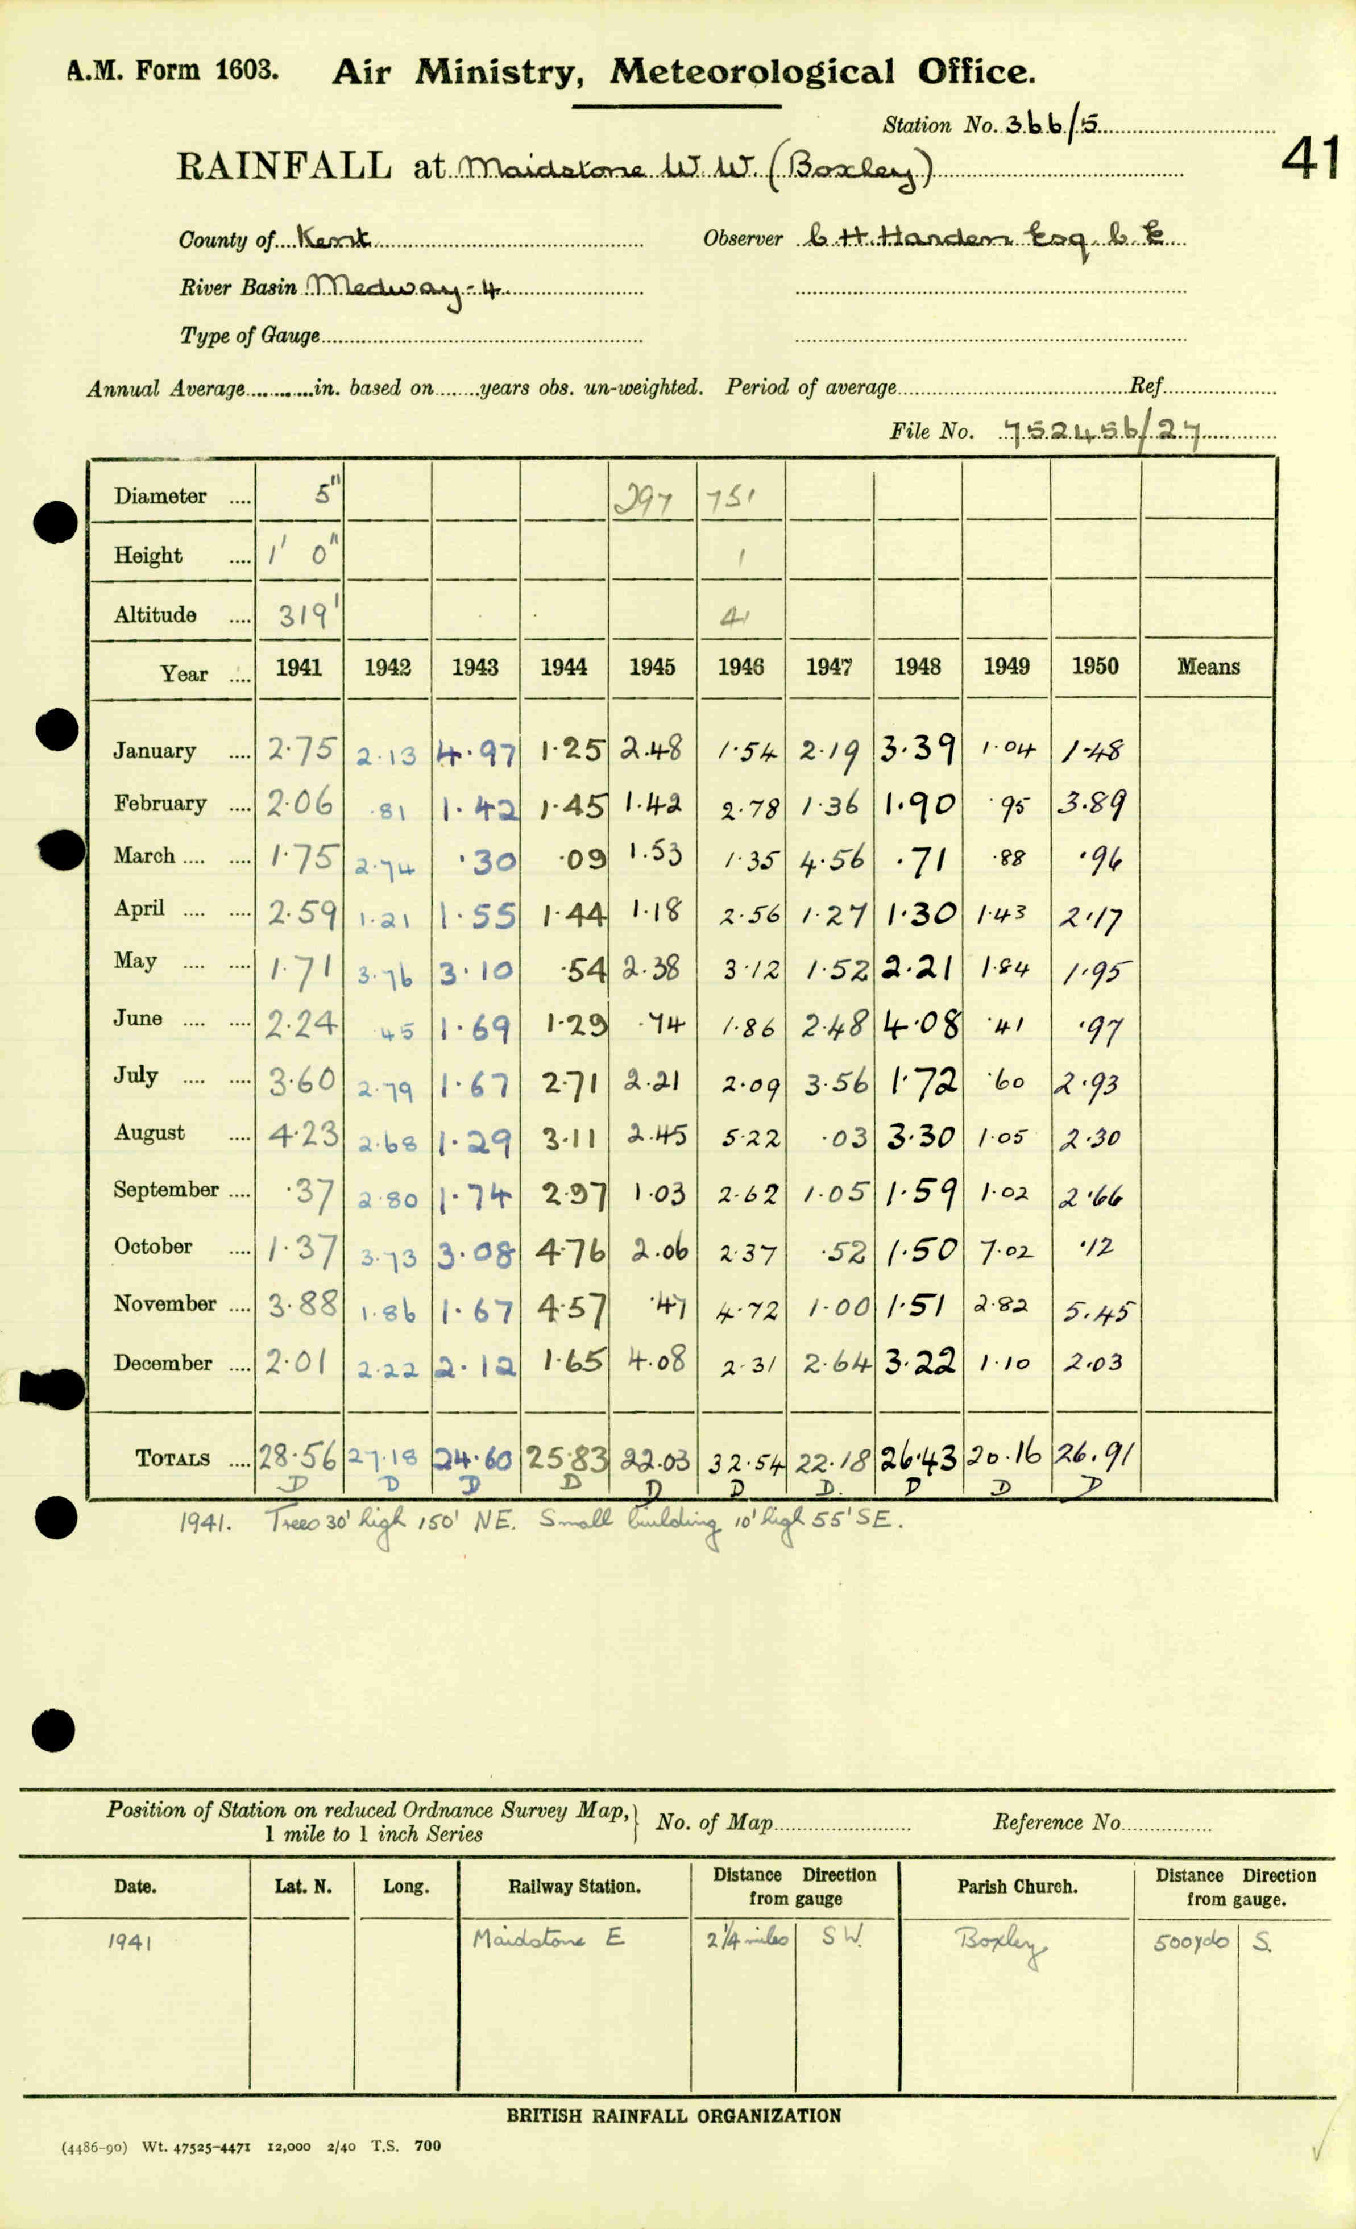 A.M. Form 1603. Air Ministry, Meteorological Office.
Station No. 366/5
41
RAINFALL at Maidstone W.W. (Boxley)
County of Kent Observer C. H. Harden Esq. C E
River Basin Medway - 4
Type of Gauge
Annual Average in. based on years obs. un-weighted. Period of average Ref.
File No. 752456/27
Diameter .... 5" 297 751
Height .... 1' 0" 1
Altitude .... 319' 41
Year .... 1941 1942 1943 1944 1945 1946 1947 1948 1949 1950 Means
January .... 2.75 2.13 4.97 1.25 2.48 1.54 2.19 3.39 1.04 1.48
February .... 2.06 .81 1.42 1.45 1.42 2.78 1.36 1.90 .95 3.89
March .... .... 1.75 2.74 .30 .09 1.53 1.35 4.56 .71 .88 .96
April .... .... 2.59 1.21 1.55 1.44 1.18 2.56 1.27 1.30 1.43 2.17
May .... .... 1.71 3.76 3.10 .54 2.38 3.12 1.52 2.21 1.84 1.95
June .... .... 2.24 .45 1.69 1.29 .74 1.86 2.48 4.08 .41 .97
July .... .... 3.60 2.79 1.67 2.71 2.21 2.09 3.56 1.72 .60 2.93
August .... 4.23 2.68 1.29 3.11 2.45 5.22 .03 3.30 1.05 2.30
September .... .37 2.80 1.74 2.97 1.03 2.62 1.05 1.59 1.02 2.66
October .... 1.37 3.73 3.08 4.76 2.06 2.37 .52 1.50 7.02 .12
November .... 3.88 1.86 1.67 4.57 .47 4.72 1.00 1.51 2.82 5.45
December .... 2.01 2.22 2.12 1.65 4.08 2.31 2.64 3.22 1.10 2.03
TOTALS .... 28.56 27.18 24.60 25.83 22.03 32.54 22.18 26.43 20.16 26.91
D D D D D D D. D D D
1941. Trees 30' high 150' NE. Small building 10' high 55' SE.
Position of Station on reduced Ordnance Survey Map, } No. of Map Reference No.
1 mile to 1 inch Series
Date. Lat. N. Long. Railway Station. Distance Direction from gauge Parish Church. Distance Direction from gauge.
1941 Maidstone E 2¼ miles SW. Boxley 500 yds S.
BRITISH RAINFALL ORGANIZATION
(4486-90) Wt. 47525-4471 12,000 2/40 T.S. 700